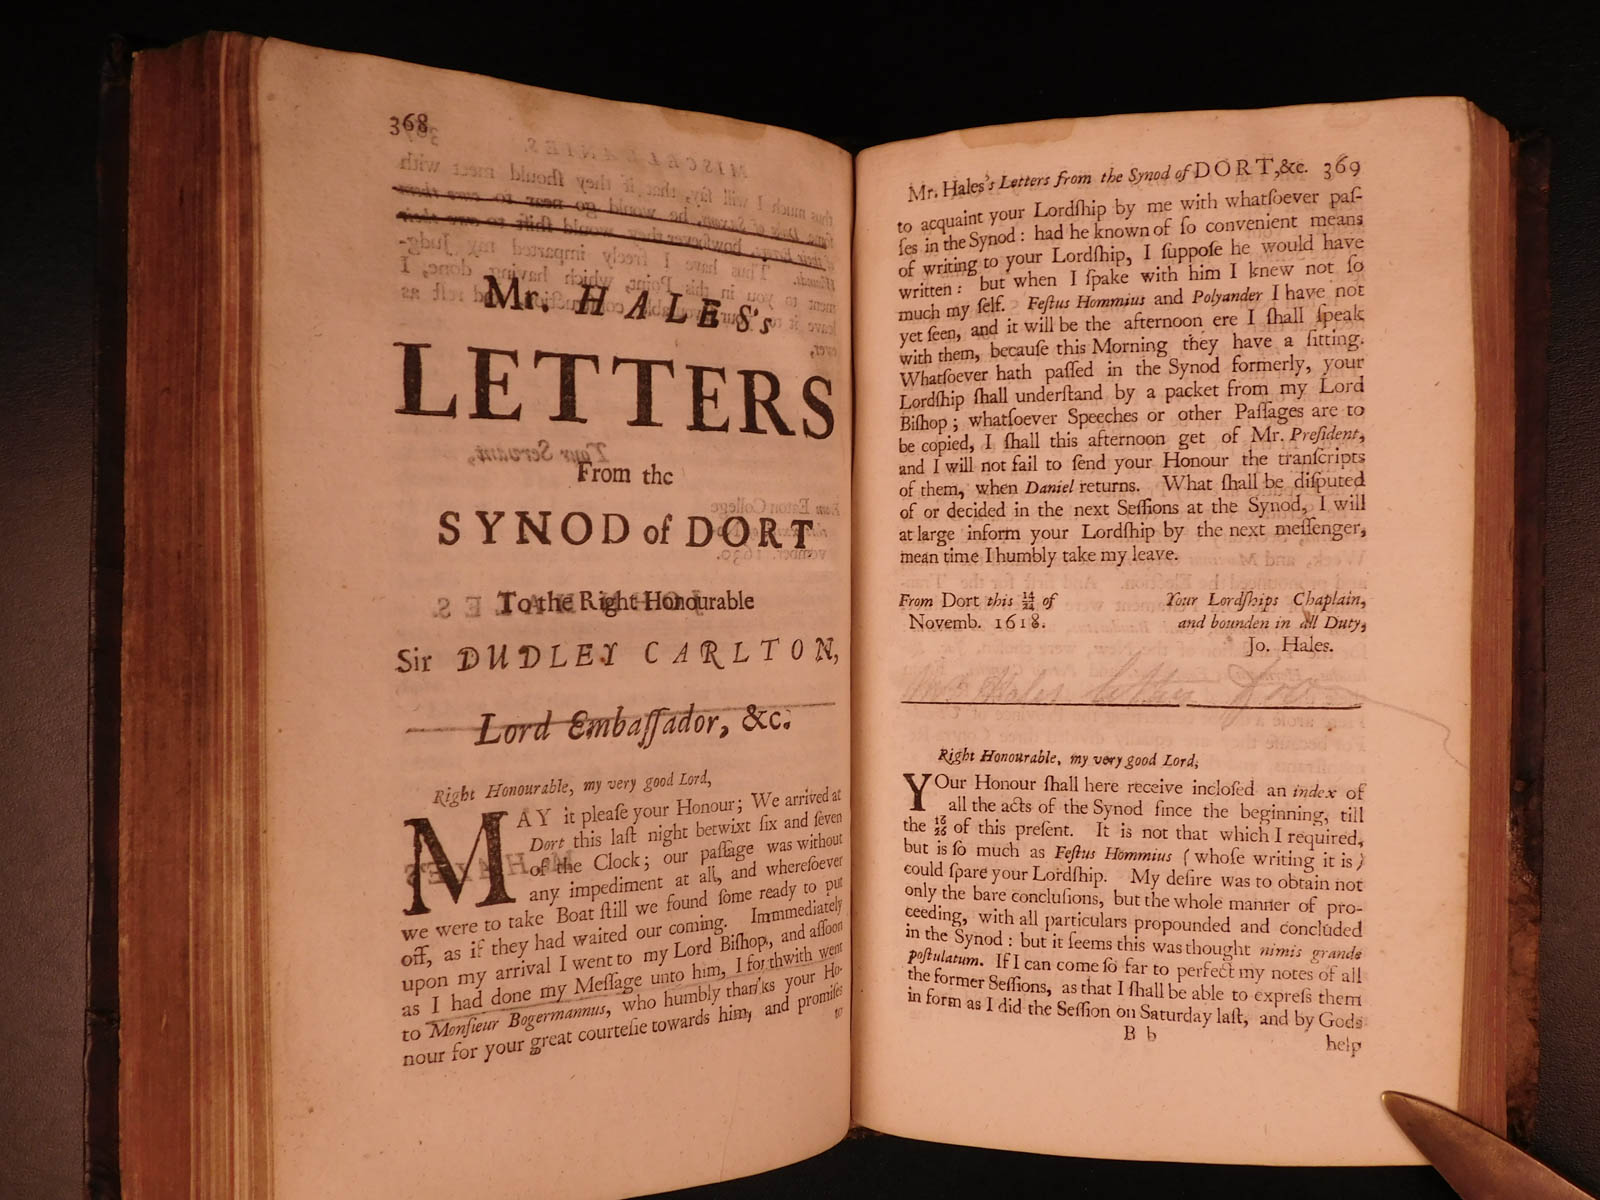 368
Mr. HALES's
LETTERS
From the
SYNOD of DORT
To the Right Honourable
Sir DUDLEY CARLTON,
Lord Embaſſador, &c.
Right Honourable, my very good Lord,
MAY it pleaſe your Honour; We arrived at
Dort this laſt night betwixt ſix and ſeven
of the Clock; our paſſage was without
any impediment at all, and whereſoever
we were to take Boat ſtill we found ſome ready to put
off, as if they had waited our coming. Immmediately
upon my arrival I went to my Lord Biſhop, and aſſoon
as I had done my Meſſage unto him, I forthwith went
to Monſieur Bogermannus, who humbly thanks your Ho-
nour for your great courteſie towards him, and promiſes
to
Mr. Hales's Letters from the Synod of DORT,&c. 369
to acquaint your Lordſhip by me with whatſoever paſ-
ſes in the Synod: had he known of ſo convenient means
of writing to your Lordſhip, I ſuppoſe he would have
written: but when I ſpake with him I knew not ſo
much my ſelf. Feſtus Hommius and Polyander I have not
yet ſeen, and it will be the afternoon ere I ſhall ſpeak
with them, becauſe this Morning they have a ſitting.
Whatſoever hath paſſed in the Synod formerly, your
Lordſhip ſhall underſtand by a packet from my Lord
Biſhop; whatſoever Speeches or other Paſſages are to
be copied, I ſhall this afternoon get of Mr. Preſident,
and I will not fail to ſend your Honour the tranſcripts
of them, when Daniel returns. What ſhall be diſputed
of or decided in the next Seſſions at the Synod, I will
at large inform your Lordſhip by the next meſſenger,
mean time I humbly take my leave.
From Dort this 14/24 of Your Lordſhips Chaplain,
Novemb. 1618. and bounden in all Duty,
Jo. Hales.
Right Honourable, my very good Lord,
YOur Honour ſhall here receive incloſed an index of
all the acts of the Synod ſince the beginning, till
the 16/26 of this preſent. It is not that which I required,
but is ſo much as Feſtus Hommius (whoſe writing it is)
could ſpare your Lordſhip. My deſire was to obtain not
only the bare concluſions, but the whole manner of pro-
ceeding, with all particulars propounded and concluded
in the Synod: but it ſeems this was thought nimis grande
poſtulatum. If I can come ſo far to perfect my notes of all
the former Seſſions, as that I ſhall be able to expreſs them
in form as I did the Seſſion on Saturday laſt, and by Gods
B b help